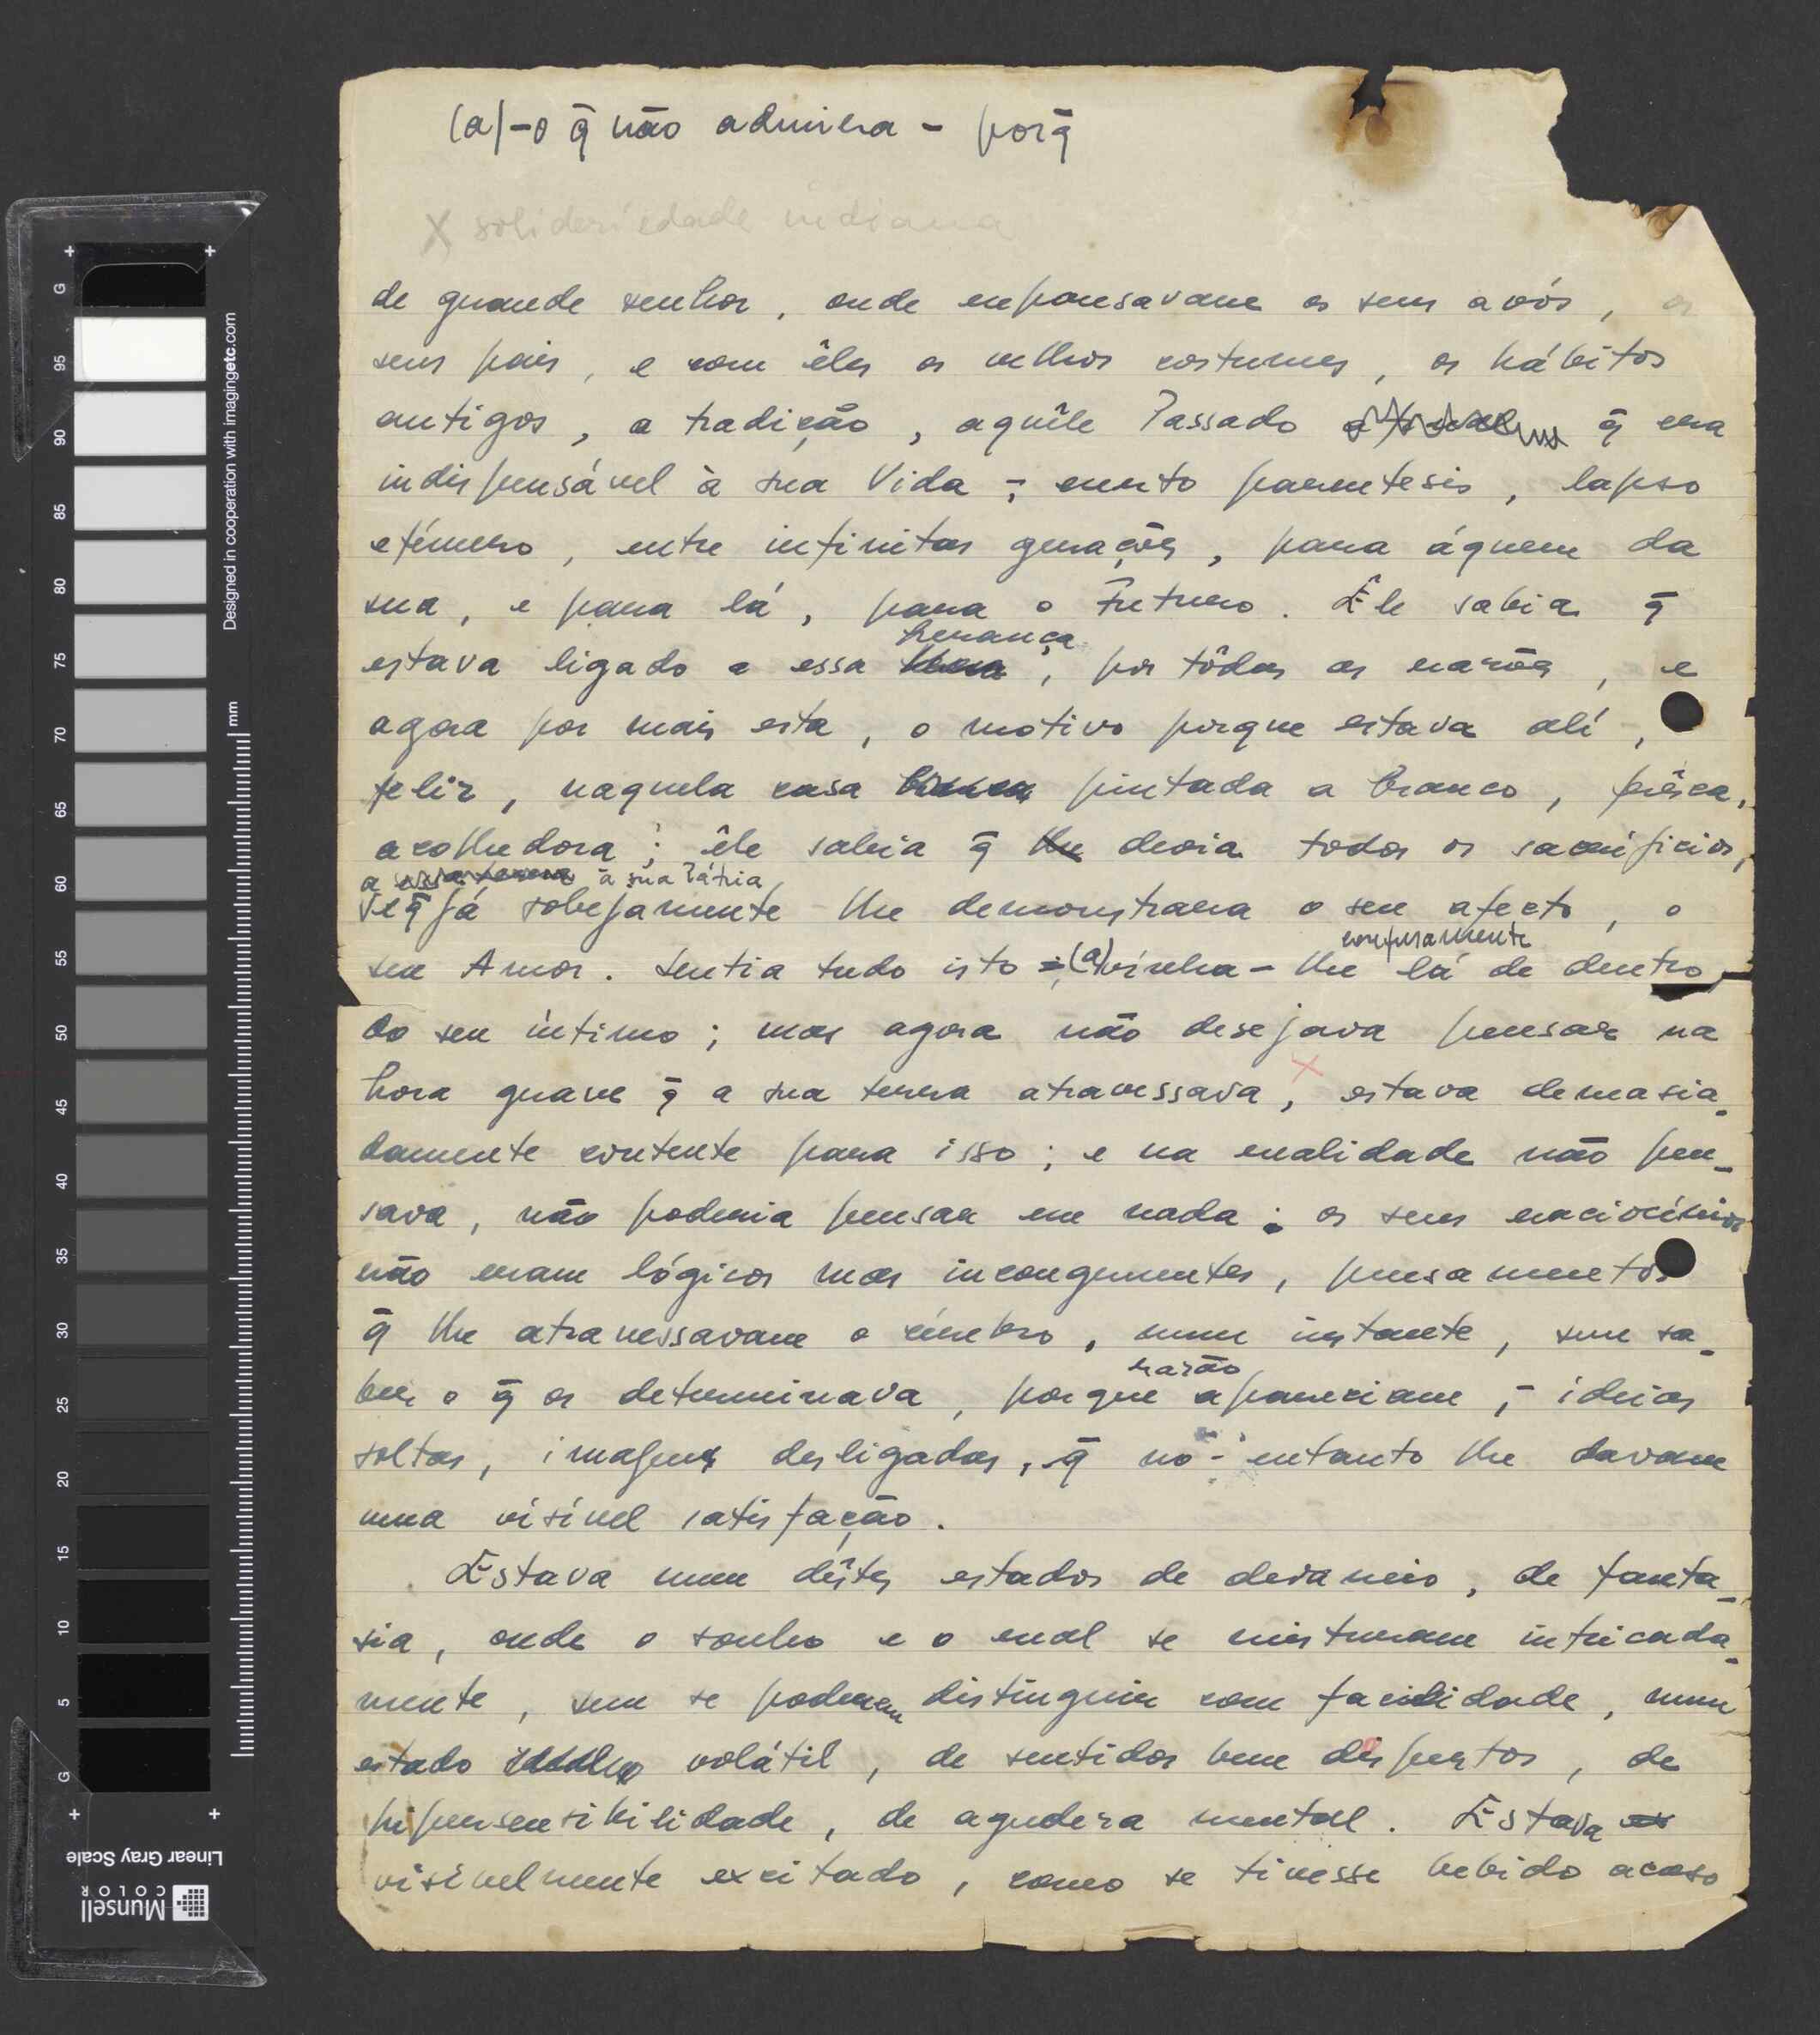 (a)-o q̄ não admira - porq̄
X solideriedade indiana
de grande senhor, onde repousavam os seus avós, os
seus pais, e com êles os velhos costumes, os hábitos
antigos, a tradição, aquêle Passado q̄ era
indispensável à sua Vida - ; curto parentesis, lapso
efémero, entre infinitas gerações, para áquem da
sua, e para lá, para o Futuro. Êle sabia q̄
herança
estava ligado a essa , por tôdas as razões, e
agora por mais esta, o motivo porque estava alí,
feliz, naquela casa branca pintada a branco, frêsca,
acolhedora ; êle sabia q̄ lhe devia todos os sacrifícios,
a essa terra à sua Pátria,
q̄ já sobejamente lhe demonstrara o seu afecto, o
confusamente
seu Amor. Sentia tudo isto ; (a) vinha-lhe lá de dentro
do seu íntimo ; mas agora não desejava pensar na
X
hora grave q̄ a sua terra atravessava, estava demasia-
damente contente para isso ; e na realidade não pen-
sava, não poderia pensar em nada : os seus raciocínios
não eram lógicos mas incongruentes, pensamentos
q̄ lhe atravessavam o cérebro, num instante, sem sa-
razão
ber o q̄ os determinava, porque apareciam, - ideias
soltas, imagens desligadas, q̄ no-entanto lhe davam
uma visível satisfação.
Estava num dêstes estados de devaneio, de fanta-
sia, onde o sonho e o real se misturam intricada-
mente, sem se poderem distinguir com facilidade, num
estado volátil, de sentidos bem despertos, de
hipersensibilidade, de agudeza mental. Estava
visívelmente excitado, como se tivesse bebido acaso
G
95
90
85
80
75
70
65
60
55
50
45
40
35
30
25
20
15
10
5
G
Designed in cooperation with imagingetc.com
mm
Linear Gray Scale
Munsell
COLOR